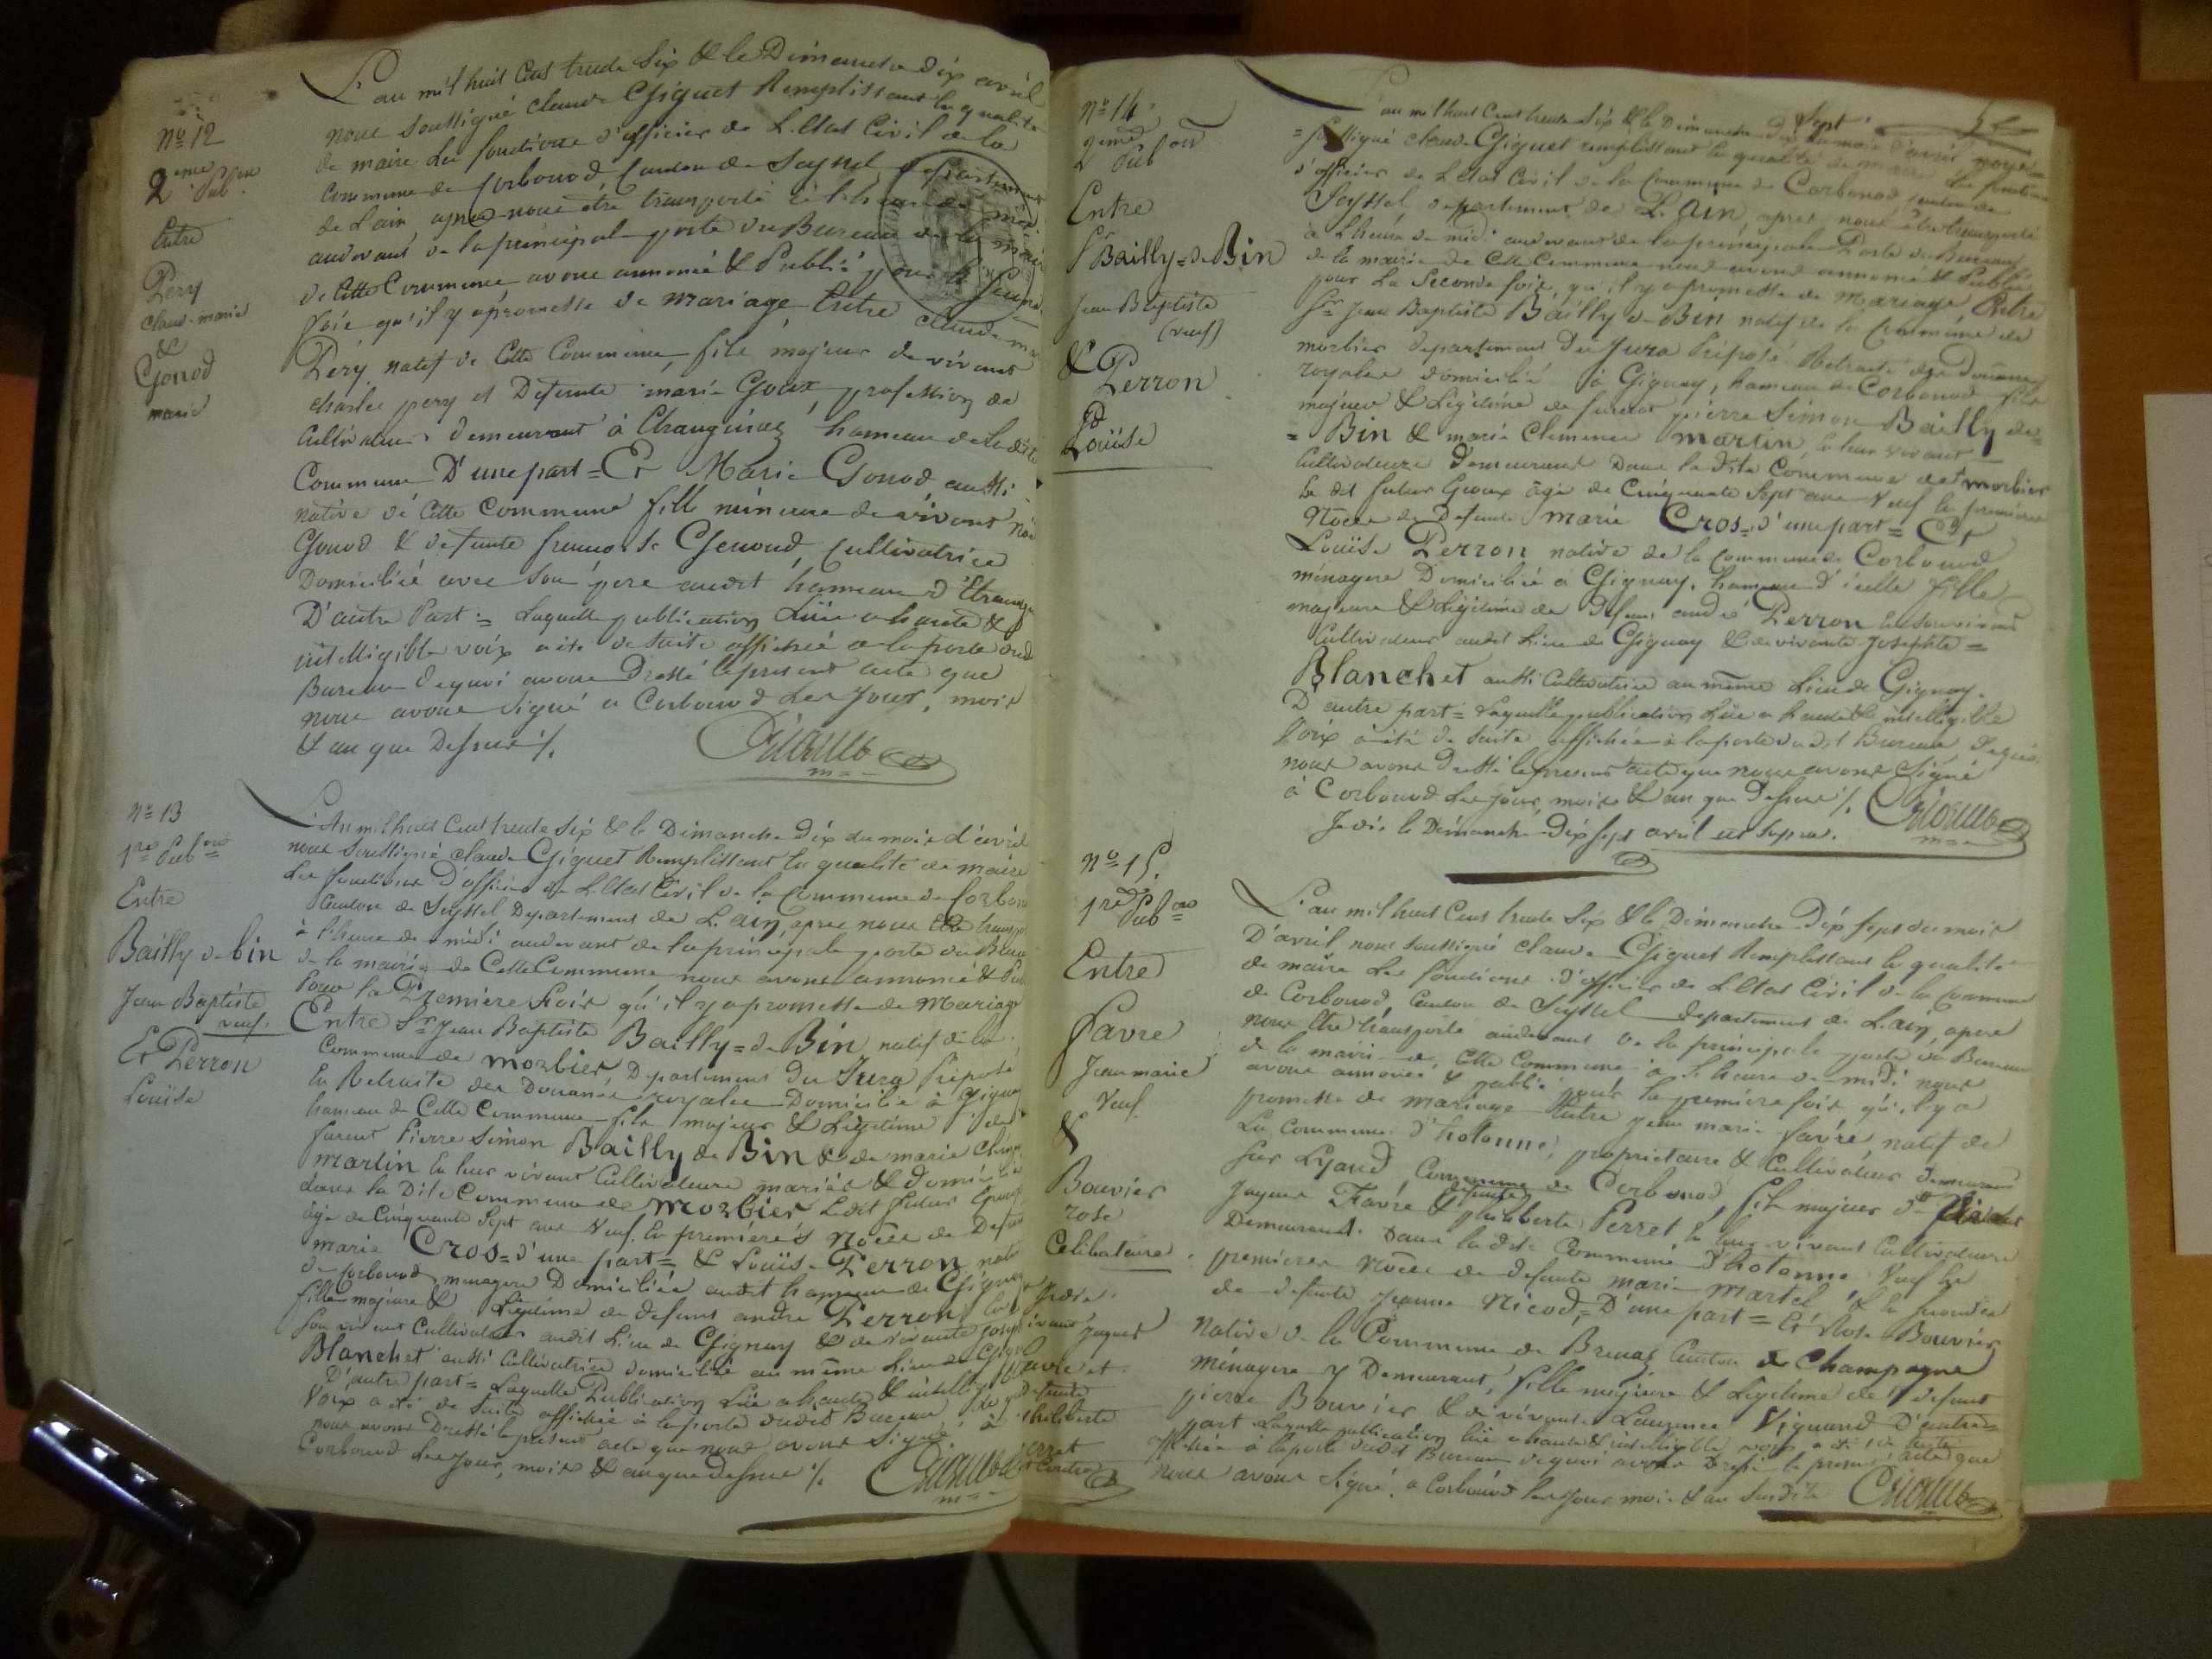 N° 12
2eme Pubon
Entre
Pery
claud-marie
&
Gonod
marie
L'an mil huit Cent trente Six & le Dimanche dix avril
nous soussigné claude Gignet Remplissant la qualité
de maire les fonctions d'officier de L'Etat Civil de la
Commune de Corbonod Canton de Seyssel, Departement
de L'ain, apres nous être transporté à l'heure de midi
audevant de la principale porte du Bureau de la mairie
de Cette Commune, avons annoncé & Publié pour la seconde
fois qu'il y a promesse de mariage Entre claude ma
Péry natif de Cette Commune, fils majeur de vivant
charles pery et Defunte marie Goux, profession de
Cultivateur demeurant à Etranginaz hameau de ladite
Commune D'une part = Et Marie Gonod aussi
native de Cette Commune fille mineure de vivant
Gonod & defunte françoise Genoud, Cultivatrice
Domiciliée avec son père audit hameau d'Etrangi
D'autre Part = Laquelle publication Lüe a haute &
intelligible voix a été de suite affichée a la porte dud
Bureau Dequoi avons Dressé le present acte que
nous avons signé a Corbonod Les Jour, mois
& an que Dessus ./.
N° 13
1re Pubon
Entre
Bailly de bin
Jean Baptiste
veuf.
Et Perron
Louise
L'An mil huit Cent trente Six & le Dimanche Dix du mois d'avril
nous soussigné claude Gignet Remplissant la qualité de maire
Les fonctions D'officier de L'Etat Civil de la Commune de Corbon
Canton de Seyssel Departement de L'ain, apres nous être transpo
à l'heure de midi audevant de la principale porte du Burea
de la mairie de Cette Commune nous avons annoncé & Pub
Pour la Premiere fois qu'il y a promesse de Mariage
Entre Sr Jean Baptiste Bailly = de Bin natif de la
Commune de Morbier Departement Du Jura Préposé
En Retraite des Douanes royales Domicilié à Gignay
hameau de Cette Commune fils majeur & Légitime des
furent Pierre Simon Bailly de Bin & de marie Clem
Martin En leur vivant Cultivateurs mariés & domicilié
dans la Dite Commune de Morbier Ledit futur Epoux
âgé de Cinquante Sept ans Veuf En premières Noces de Defun
Marie Cros = d'une part = & Louise Perron nati
de Corbonod menagere Domiciliée audit hameau de Gignay
fille majeure & Légitime de defunt andre Perron En
son vivant Cultivateur audit Lieu de Gignay & de vivante Joseph
Blanchet aussi Cultivatrice domiciliée au même Lieu de Gign
D'autre part = Laquelle Publication Lüe a haute & intelligible
Voix a été de Suite affichée à la porte dudit Bureau, De qu
nous avons Dressé le present acte que nous avons Signé à
Corbonod Les Jour, mois & an que dessus ./.
N° 14
2eme Pubon
Entre
Sr Bailly = de Bin
Jean Baptiste
(veuf)
& Perron
Louise
L'an mil huit Cent trente Six & le Dimanche dix Sept du mois d'avril nous
= soussigné claude Gignet remplissant la qualité de maire Les fonctions
d'officier de L'Etat Civil de la Commune de Corbonod Canton de
Seyssel, departement de L'Ain, apres nous être transporté
à L'heure de midi audevant de la principale Porte du Bureau
de la mairie de Cette Commune nous avons annoncé & Publié
pour La Seconde fois, qu'il y a promesse de Mariage, Entre
Sr Jean Baptiste Bailly de Bin natif de la Commune de
morbier departement Du Jura Préposé Retraité des Douanes
royales domicilié à Gignay, hameau de Corbonod fils
majeur & Légitime de furent pierre Simon Bailly de
= Bin & marie Clemence Martin, En leur vivant
Cultivateurs demeurant Dans la dite Commune de Morbier
Le dit futur Epoux âgé de Cinquante Sept ans Veuf En premières
Noces de Defunte Marie Cros = d'une part = Et
Louise Perron native de la Commune de Corbonod
ménagere Domiciliée à Gignay, hameau d'icelle fille
majeure & Légitime de Defunt andré Perron En son vivant
Cultivateur audit Lieu de Gignay & de vivante Josephte =
Blanchet aussi Cultivatrice au même Lieu de Gignay.
D'autre part = Laquelle publication Lüe a haute & intelligible
Voix a été de Suite affichée à la porte dudit Bureau, Dequoi
nous avons Dressé le present acte que nous avons Signé
à Corbonod Les Jour, mois & an que Dessus ./.
Je dis le Dimanche Dix Sept avril ut Supra.
N° 15.
1re Pubon
Entre
Favre
Jean marie
Veuf
&
Bouvier
rose
Celibataire.
L'an mil huit Cent trente Six & le Dimanche Dix Sept du mois
D'avril, nous soussigné claude Gignet Remplissant la qualité
de maire Les fonctions d'officier de L'Etat Civil de la Commune
de Corbonod, Canton de Seyssel departement de L'ain, apres
nous être transporté audevant de la principale porte du Bureau
de la mairie de Cette Commune à L'heure de midi nous
avons annoncé & publié pour la premiere fois qu'il y a
promesse de mariage Entre Jean marie favre natif de
La Commune d'hotonne, propriétaire & Cultivateur demeurant
sur Lyaud, Commune de Corbonod, fils majeur de
Jaques Favre & defunte philiberte Perret En leur vivant Cultivateurs
Demeurant Dans la dite Commune d'hotonne Veuf En
premieres Noces de defunte marie Martel, & En secondes
de defunte Jeanne Nicod, = D'une part = Et Rose Bouvier
Native de la Commune de Brenaz Canton de Champagne
Ménagere y Demeurant, fille majeure & Légitime de defunt
pierre Bouvier & de vivante Laurence Viguand D'autre =
part Laquelle publication lüe a haute & intelligible voix a été de suite
affichée à la porte dudit Bureau dequoi avons Dressé le present acte que
nous avons Signé, a Corbonod Les Jour mois & an Susdits